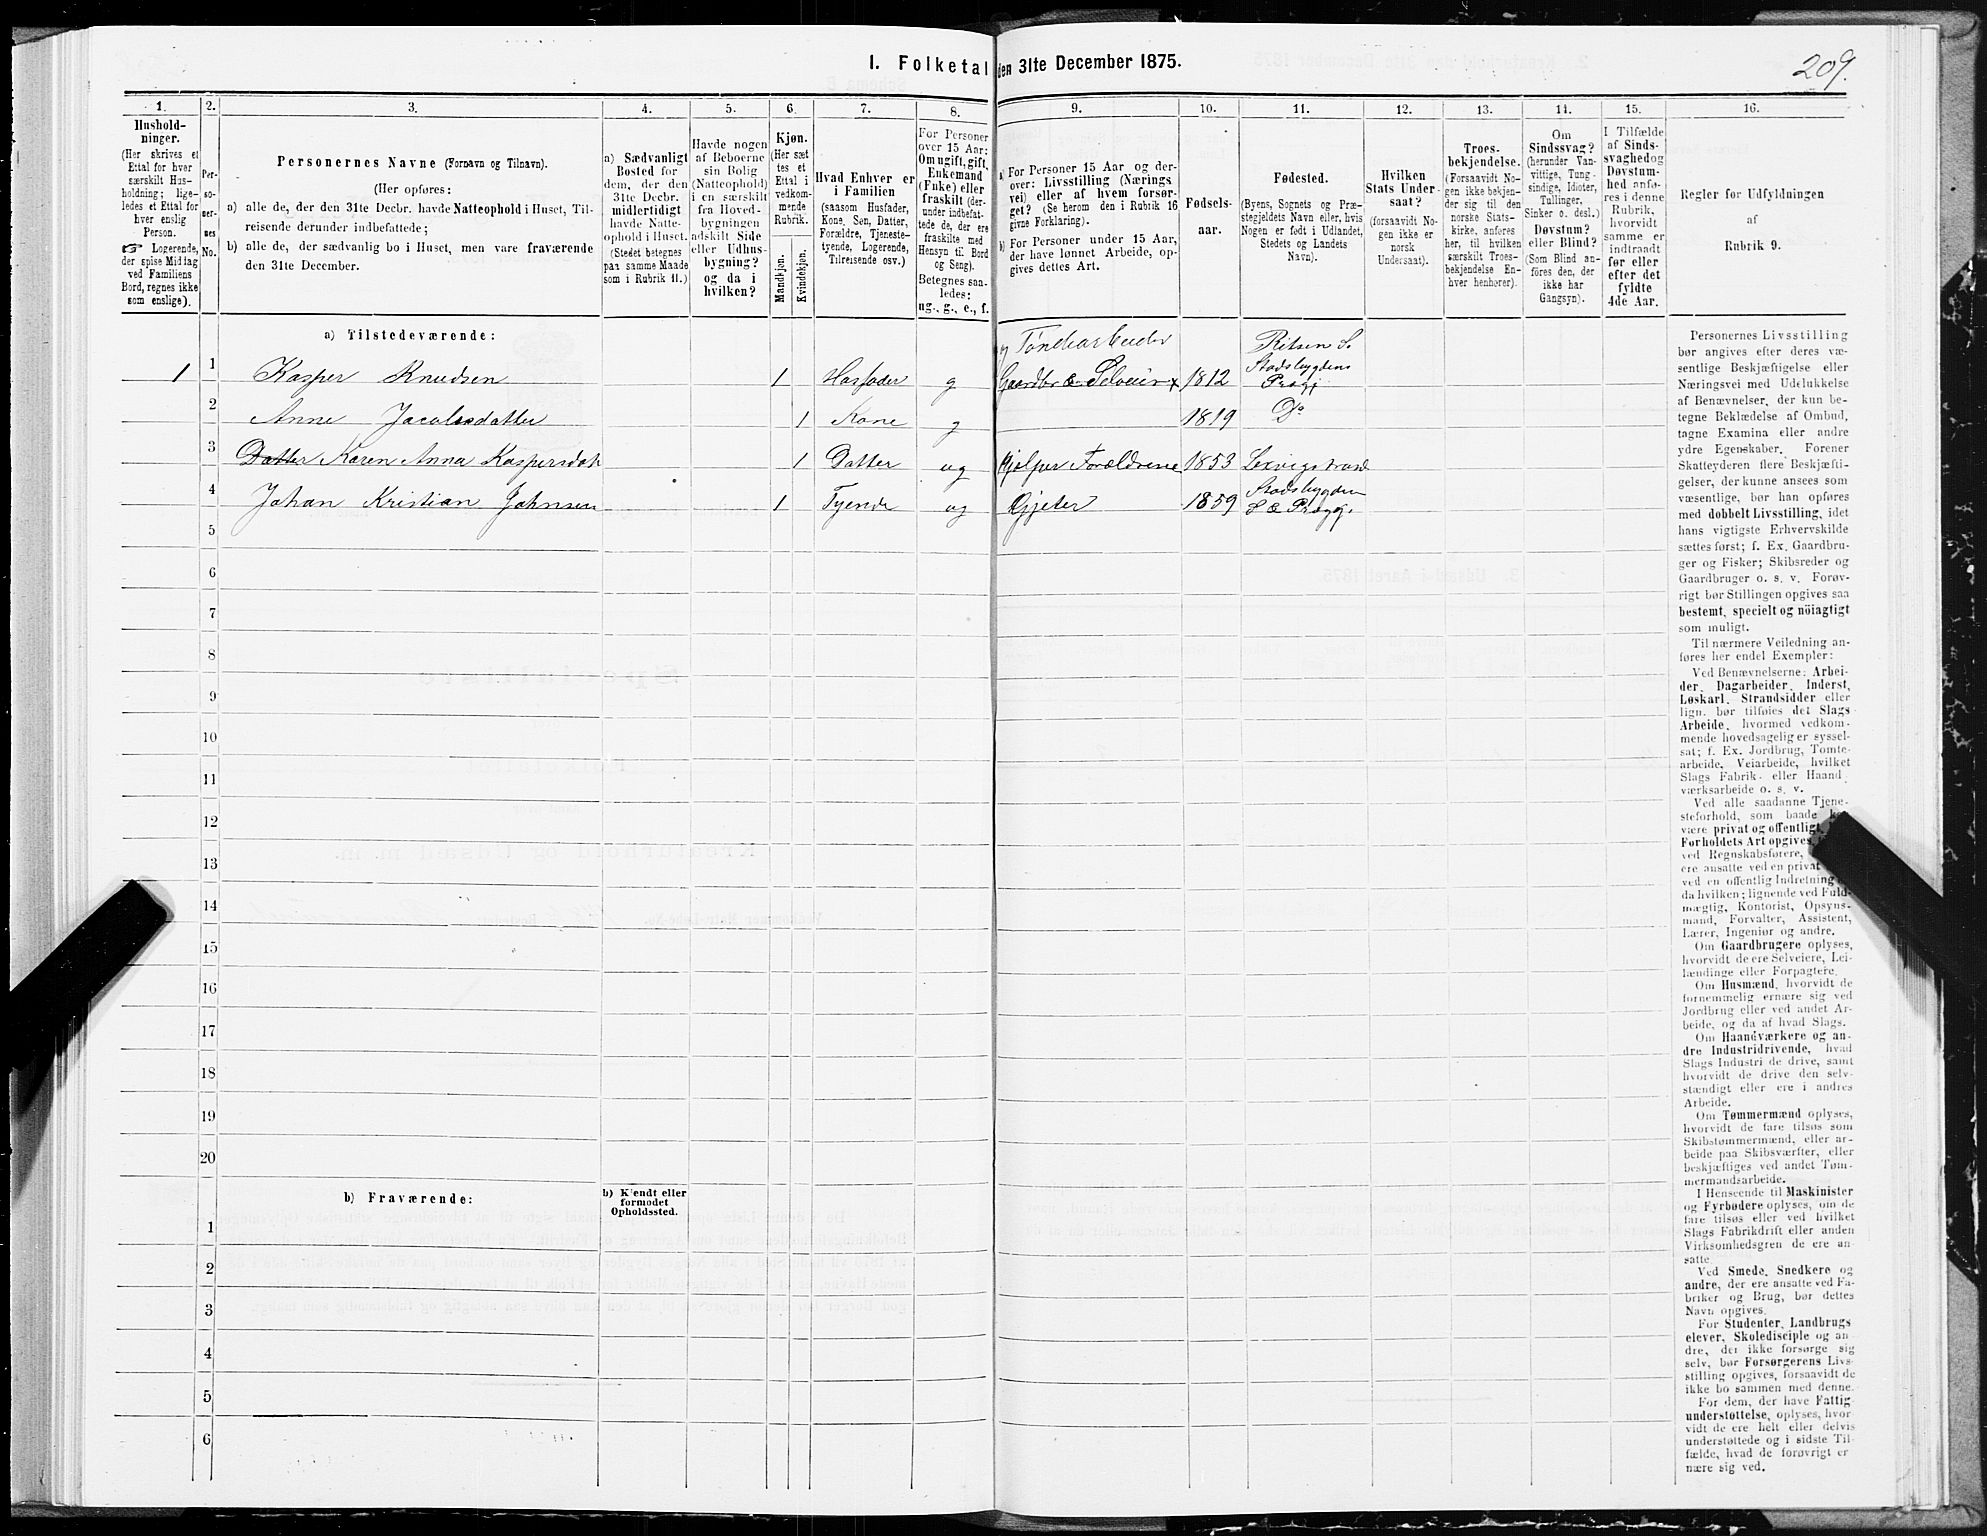 I. Folketal den 31te December 1875.
209.
1.
2.
3.
4.
5.
6.
7.
8.
9.
10.
11.
12.
13.
14.
15.
16.
Hushold-
ninger.
(Her skrives et
Ettal for hver
særskilt Hus-
holdning; lige-
ledes et Ettal for
hver enslig
Person.
☞ Logerende,
der spise Middag
ved Familiens
Bord, regnes ikke
som enslige).
Per-
so-
ner-
nes
No.
Personernes Navne (Fornavn og Tilnavn).
(Her opføres:
a) alle de, der den 31te Decbr. havde Natteophold i Huset, Til-
reisende derunder indbefattede;
b) alle de, der sædvanlig bo i Huset, men vare fraværende
den 31te December.
a) Sædvanligt
Bosted for
dem, der den
31te Decbr.
midlertidigt
havde Natte-
ophold i Huset.
(Stedet betegnes
paa samme Maade
som i Rubrik 11.)
Havde nogen
af Beboerne
sin Bolig
(Natteophold)
i en særskilt
fra Hoved-
bygningen
adskilt Side
eller Udhus-
bygning?
og da i
hvilken?
Kjøn.
(Her sæt
tes et
Ettal i
vedkom-
mende
Rubrik.
Mandkjøn.
Kvindekjøn.
Hvad Enhver er
i Familien
(saasom Husfader,
Kone, Søn, Datter,
Forældre, Tjeneste-
tyende, Logerende,
Tilreisende osv.)
For Personer
over 15 Aar:
Om ugift, gift,
Enkemand
(Enke) eller
fraskilt (der-
under indbefat-
tede de, der ere
fraskilte med
Hensyn til Bord
og Seng).
Betegnes saa-
ledes:
ug., g., e., f.
a) For Personer 15 Aar og der-
over: Livsstilling (Nærings
vei) eller af hvem forsør-
get? (Se herom den i Rubrik 16
givne Forklaring).
b) For Personer under 15 Aar,
der have lønnet Arbeide, op-
gives dettes Art.
Fødsels-
aar.
Fødested.
(Byens, Sognets og Præ-
stegjeldets Navn eller, hvis
Nogen er født i Udlandet,
Stedets og Landets
Navn).
Hvilken
Stats Under-
saat?
(forsaavidt No-
gen ikke er
norsk
Undersaat).
Troes-
bekjendelse.
(Forsaavidt No-
gen ikke bekjen-
der sig til den
norske Stats-
kirke, anføres
her, til hvilken
særskilt Troes-
bekjendelse En-
hver henhører).
Om
Sindssvag?
(herunder Van-
vittige, Tung-
sindige, Idioter,
Tullinger,
Sinker o. desl.)
Døvstum?
eller Blind?
(Som Blind an-
føres den, der
ikke har
Gangsyn).
I Tilfælde
af Sinds-
svaghed og
Døvstum-
hed anfø-
res i denne
Rubrik,
hvorvidt
samme er
indtraadt
før eller
efter det
fyldte
4de Aar.
Regler for Udfyldningen
af
Rubrik 9.
a) Tilstedeværende:
Tøndearbeider
Ritsen S.
Stadsbygdens
1 1 Kasper Knudsen 1 Husfader g Gaardbr & Selveier x 1812 Prægj
2 Anne Jacobsdatter 1 Kone g 1819 Do
3 Datter Karen Anna Kaspersdat 1 Datter ug Hjelper Forældrene 1853 Lexvigstrand
Stadsbygden
4 Johan Kristian Johnsen 1 Tyende ug Gjeter 1859 S & Prægj.
5
6
7
8
9
10
11
12
13
14
15
16
17
18
19
20
b) Fraværende:
b) Kjendt eller
formodet
Opholdssted.
1
2
3
4
5
6
Personernes Livsstilling
bør angives efter deres væ-
sentlige Beskjæftigelse eller
Næringsvei med Udelukkelse
af Benævnelser, der kun be-
tegne Beklædelse af Ombud,
tagne Examina eller andre
ydre Egenskaber. Forener
Skatteyderen flere Beskjæfti-
gelser, der kunne ansees som
væsentlige, bør han opføres
med dobbelt Livsstilling, idet
hans vigtigste Erhvervskilde
sættes først; f. Ex. Gaardbru-
ger og Fisker; Skibsreder og
Gaardbruger o. s. v. Forøv-
rigt bør Stillingen opgives saa
bestemt, specielt og nöiagtigt
som muligt.
Til nærmere Veiledning an-
føres her endel Exempler:
Ved Benævnelserne: Arbei-
der, Dagarbeider, Inderst,
Løskarl, Strandsidder eller
lign. bør tilføies det Slags
Arbeide, hvormed vedkom-
mende hovedsagelig er syssel-
sat; f. Ex. Jordbrug, Tomte-
arbeide, Veiarbeide, hvilket
Slags Fabrik- eller Haand
værksarbeide o. s. v.
Ved alle saadanne Tjene-
steforhold, som baade k
være privat og offentligt,
Forholdets Art opgives,
ved Regnskabsførere,
ere ansatte ved en privat
ved en offentlig Indretning
da hvilken; lignende ved Fuld-
mægtig, Kontorist, Opsyns-
mand, Forvalter, Assistent,
Lærer, Ingeniør og andre.
Om Gaardbrugere oplyses,
hvorvidt de ere Selveiere, Lei-
lændinge eller Forpagtere.
Om Husmænd, hvorvidt de
fornemmelig ernære sig ved
Jordbrug eller ved andet Ar-
beide, og da af hvad Slags.
Om Haandværkere og an-
dre Industridrivende, hvad
Slags Industri de drive, samt
hvorvidt de drive den selv-
stændigt eller ere i andres
Arbeide.
Om Tømmermænd oplyses,
hvorvidt de fare tilsøs som
Skibstømmermænd, eller ar-
beide paa Skibsværfter, eller
beskjæftiges ved andet Tøm-
mermandsarbeide.
I Henseende til Maskinister
og Fyrbødere oplyses, om de
fare tilsøs eller ved hvilket
Slags Fabrikdrift eller anden
Virksomhedsgren de ere an-
satte
Ved Smede, Snedkere og
andre, der ere ansatte ved Fa-
briker og Brug, bør dettes
Navn opgives.
For Studenter, Landbrugs
elever, Skoledisciple og an-
dre, der ikke forsørge sig
selv, bør Forsørgerens Livs-
stilling opgives, forsaavidt de
ikke bo sammen med denne.
For dem, der have Fattig-
understøttelse, oplyses, hvor-
vidt de ere helt eller delvis
understøttede og i sidste Til-
fælde, hvad de forøvrigt er
nære sig ved.